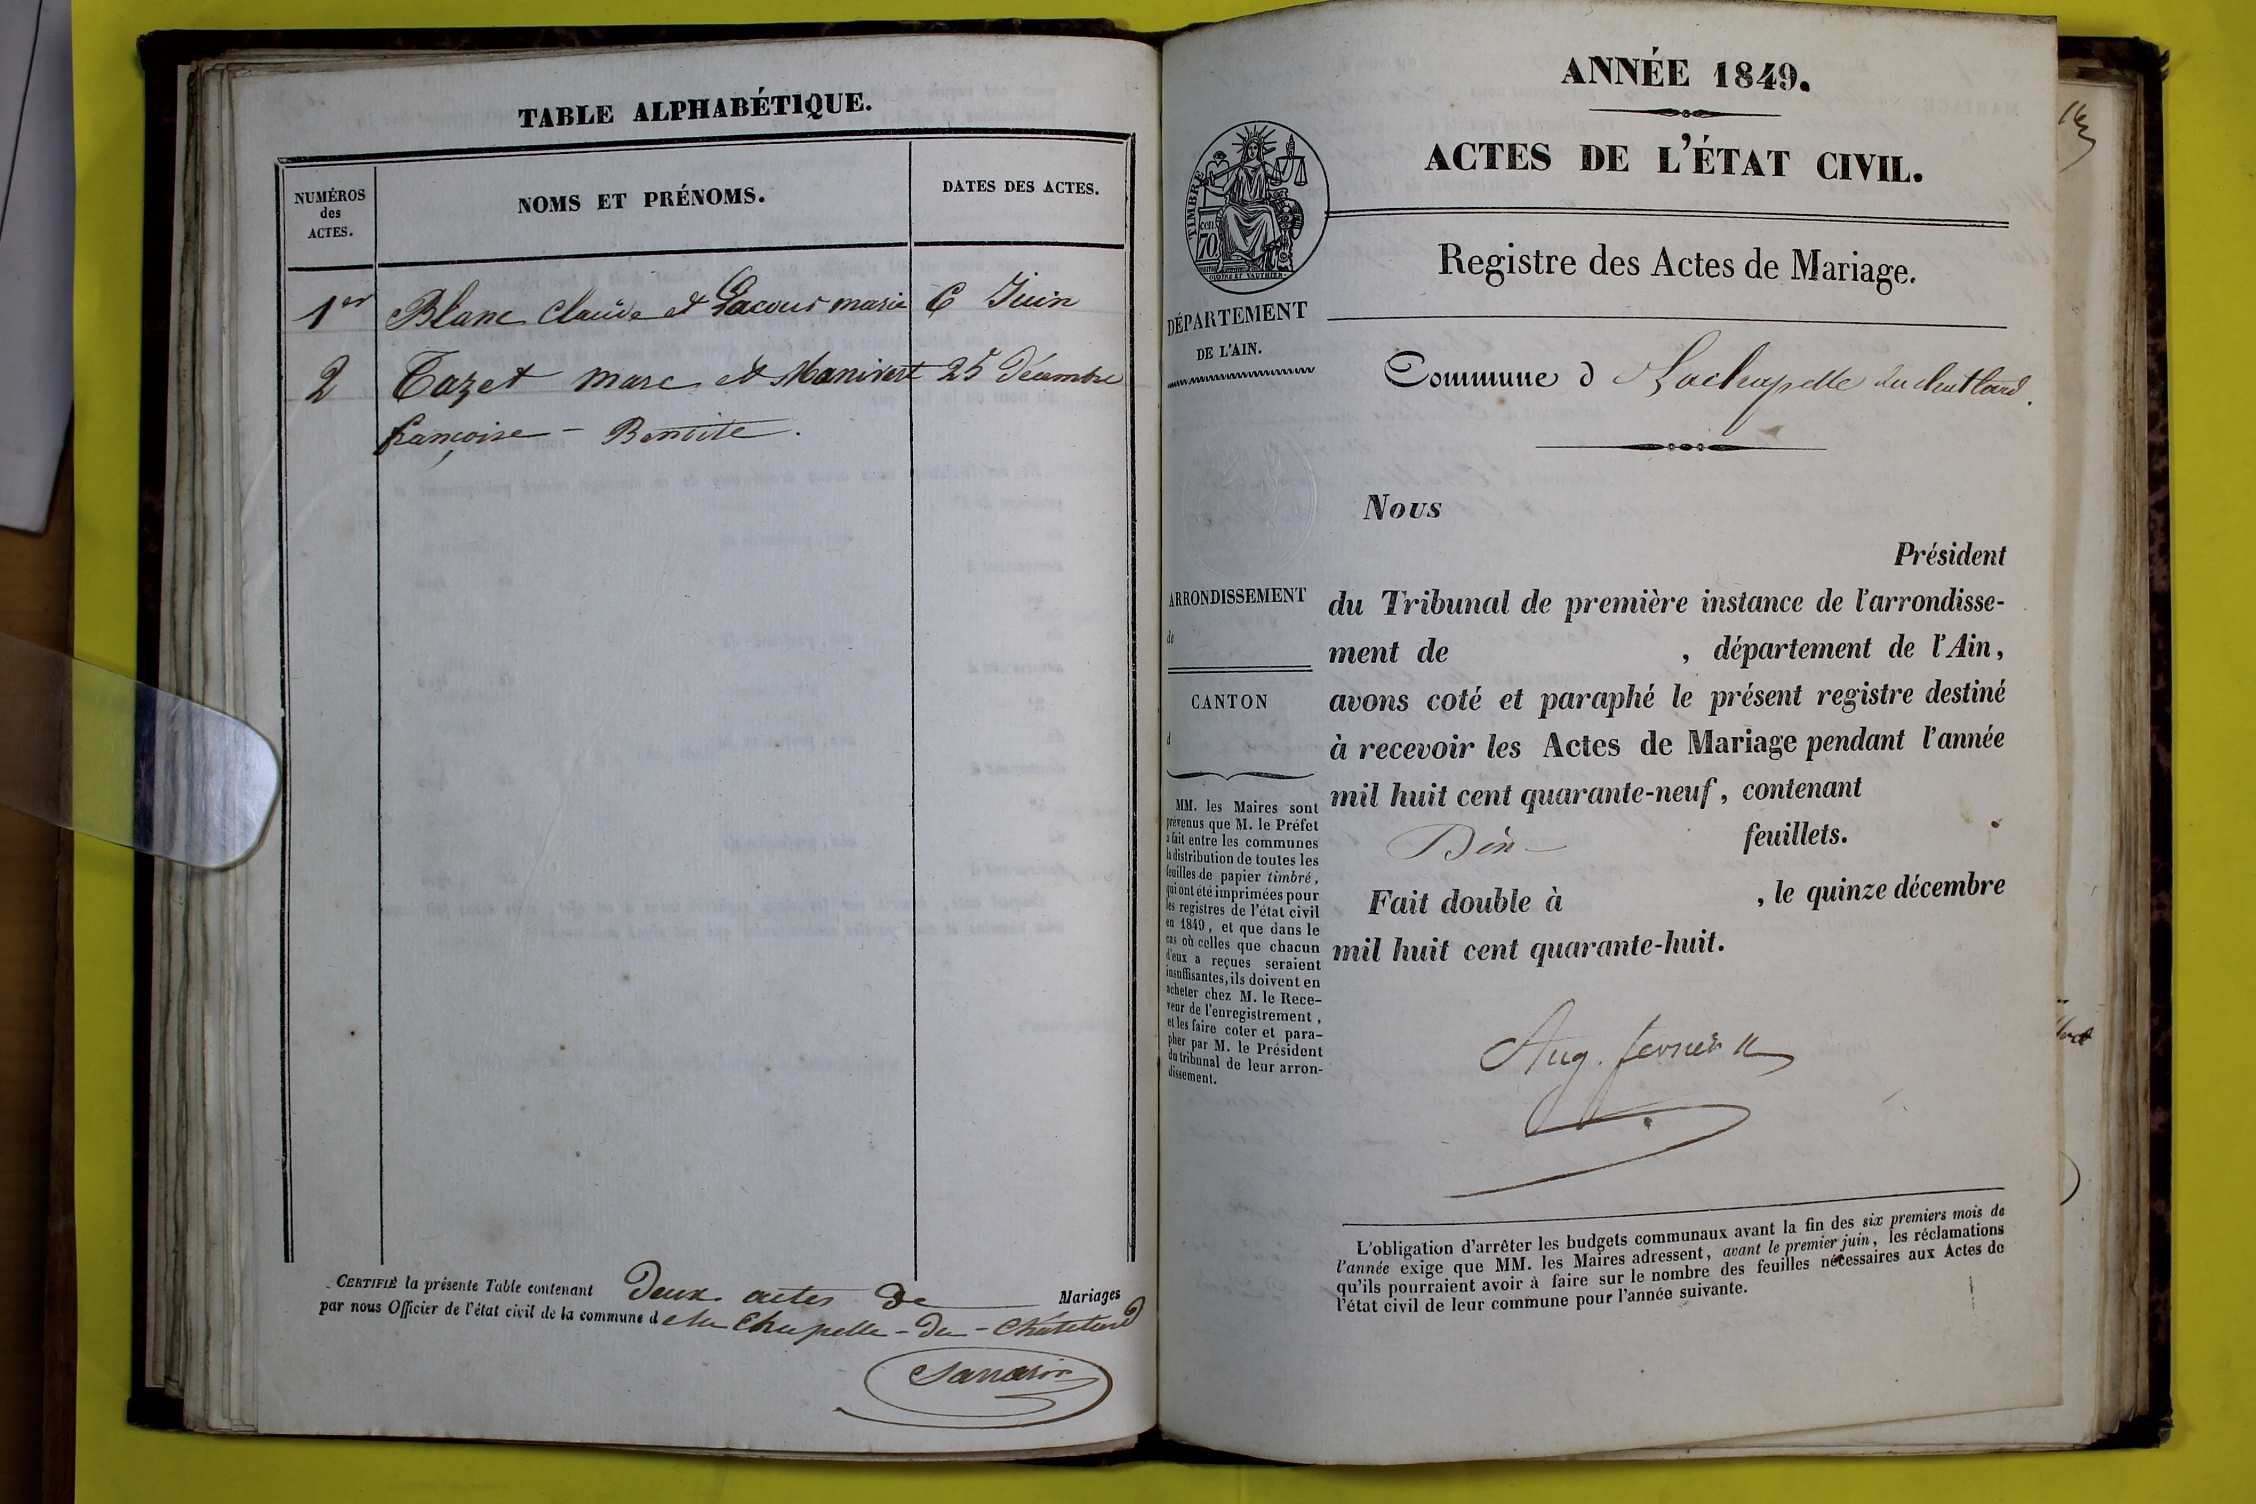 TABLE ALPHABÉTIQUE.
NUMÉROS
des
ACTES.
NOMS ET PRÉNOMS.
DATES DES ACTES.
1er Blanc Claude et Lacour marie 6 Juin
2 Tazet marc et Manivert 25 Décembre
françoise - Benoite.
CERTIFIÉ la présente Table contenant Deux actes De Mariages
par nous Officier de l'état civil de la commune de la Chapelle-du-Chatelard
ANNÉE 1849.
ACTES DE L'ÉTAT CIVIL.
Registre des Actes de Mariage.
TIMBRE
cen.
70
OUDINE ET VAUTHIER
DÉPARTEMENT
DE L'AIN.
Commune d Lachapelle du chatlard.
Nous
Président
du Tribunal de première instance de l'arrondisse-
ment de , département de l'Ain,
avons coté et paraphé le présent registre destiné
à recevoir les Actes de Mariage pendant l'année
mil huit cent quarante-neuf, contenant
feuillets.
Fait double à , le quinze décembre
mil huit cent quarante-huit.
ARRONDISSEMENT
de
CANTON
d
MM. les Maires sont
prévenus que M. le Préfet
a fait entre les communes
la distribution de toutes les
feuilles de papier timbré,
qui ont été imprimées pour
les registres de l'état civil
en 1849, et que dans le
cas où celles que chacun
d'eux a reçues seraient
insuffisantes, ils doivent en
acheter chez M. le Rece-
veur de l'enregistrement,
et les faire coter et para-
pher par M. le Président
du tribunal de leur arron-
dissement.
Aug.
L'obligation d'arrêter les budgets communaux avant la fin des six premiers mois de
l'année exige que MM. les Maires adressent, avant le premier juin, les réclamations
qu'ils pourraient avoir à faire sur le nombre des feuilles nécessaires aux Actes de
l'état civil de leur commune pour l'année suivante.